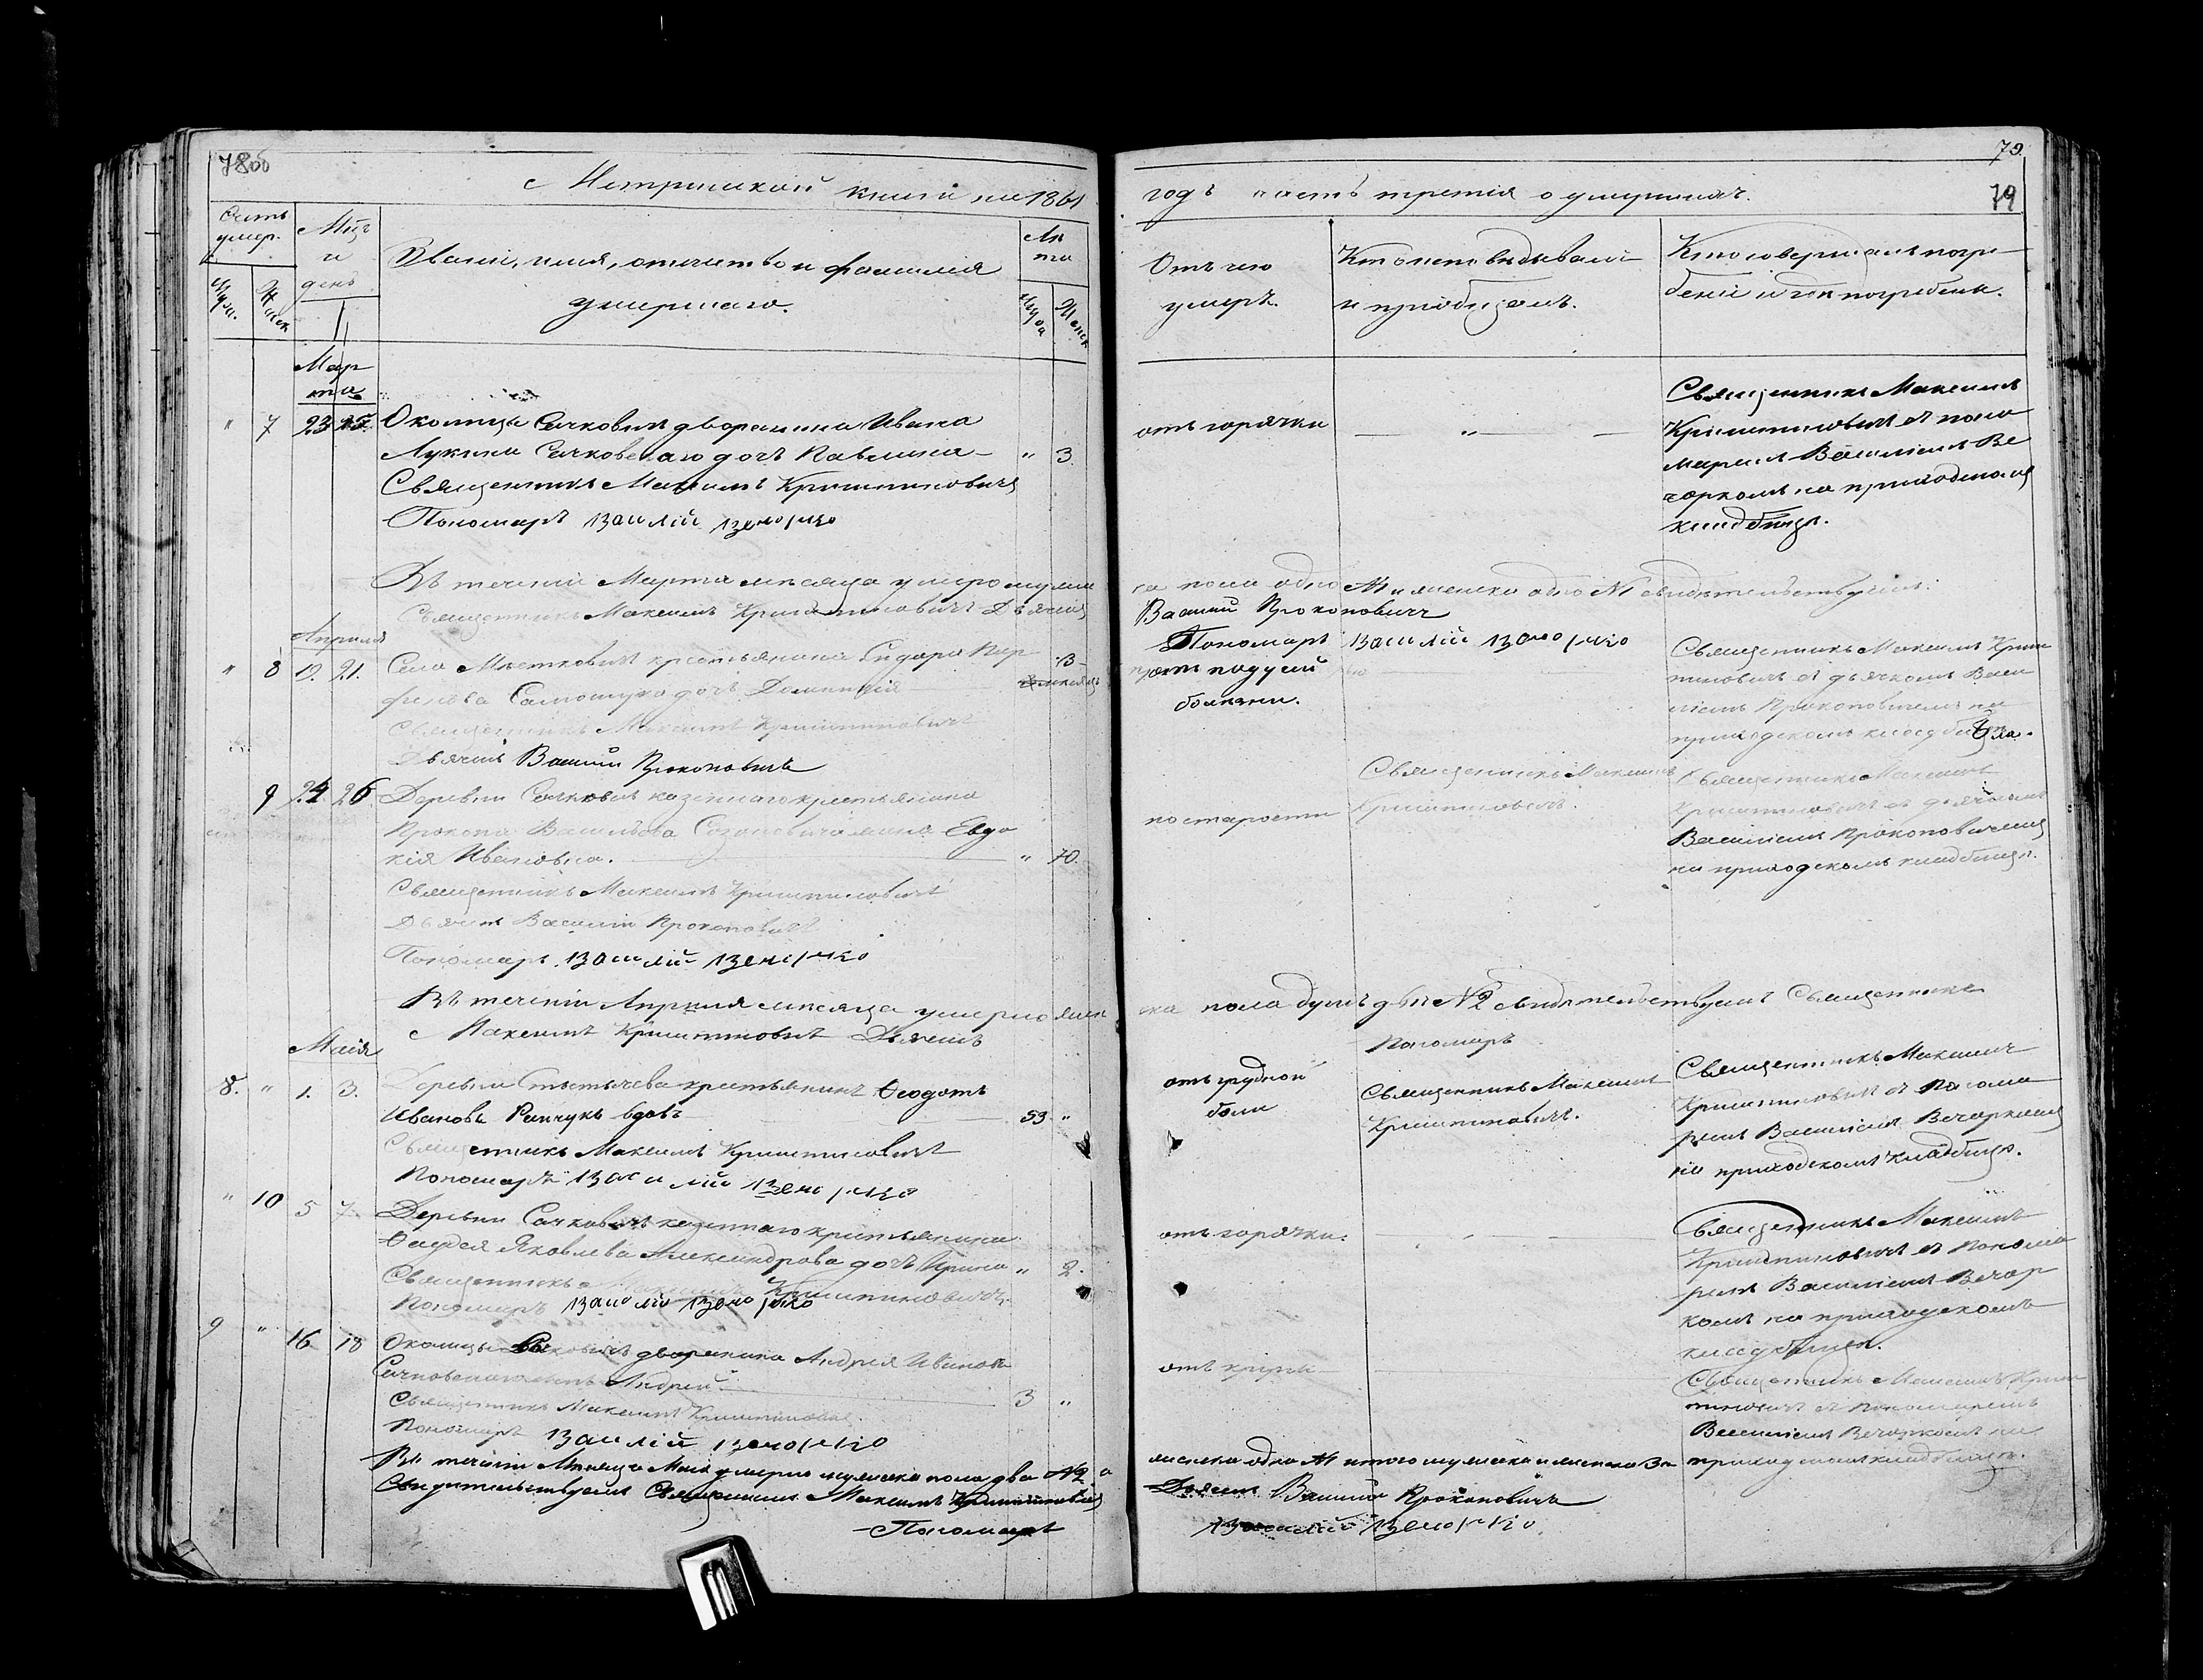 78об
79
Метрической книги на 1861
годъ часть третія о умершихъ.
79
Счетъ умер.
Муж.
Женск
Мѣц и день
Званіе, имя, отчество и фамилія
умершаго.
Лѣта
Муж
Женск
Отъ чего
умеръ.
Кто исповѣдывалъ
и пріобщалъ.
Кто совершалъ погре
беніе и гдѣ погребены.
Мар
та
" 7 23 25 Околицы Сачковичъ дворянина Ивана
Лукина Сачковскаго дочь Павлина " 3
Священникъ Максимъ Криштиновичъ
Пономарь Василій Вечорко
отъ горячки
"
Священникъ Максимъ
Криштиновичъ съ поно
маремъ Василіемъ Ве
чоркомъ на приходскомъ
кладбищѣ.
Въ теченіи Марта мѣсяца умерло муже
ска пола одно №1 и женска одно №1 свидѣтельствуемъ:
Священникъ Максимъ Криштиновичъ Дьячекъ
Василій Прокоповичъ
Пономарь Василій Вечорко
Апрѣля
" 8 19. 21. Села Мѣтковичъ крестьянина Сидора Пор
фирова Самошука дочь Доминикія
Священникъ Максимъ Криштиновичъ
Дьячекъ Василій Прокоповичъ
отъ падучей
болѣзни.
Священникъ Максимъ Кришти
тиновичъ съ дьячкомъ Васи
ліемъ Прокоповичемъ на
приходскомъ кладбищѣ.
9 24 26 Деревни Сачковичъ казеннаго крестьянина
Прокопа Васильева Созоновича жена Евдо
кія Иванова. " 70.
Священникъ Максимъ Криштиновичъ
Дьячекъ Василій Прокоповичъ
Пономарь Василій Вечорко
по старости
Священникъ Максимъ
Криштиновичъ.
Священникъ Максимъ
Криштиновичъ съ дьячкомъ
Василіемъ Прокоповичемъ
на приходскомъ кладбищѣ.
Въ теченіи Апрѣля мѣсяца умерло жен
ска пола душъ двѣ №2 свидѣтельствуемъ Священникъ
Максимъ Криштиновичъ Дьячекъ
Пономарь
Маія
8. " 1. 3. Деревни крестьянинъ Ѳеодотъ
Ивановъ Ранчукъ вдовъ 53 "
Священникъ Максимъ Криштиновичъ
Пономарь Василій Вечорко
отъ грудной
боли
Священникъ Максимъ
Криштиновичъ.
Священникъ Максимъ
Криштиновичъ съ Понома
ремъ Василіемъ Вечоркомъ
на приходскомъ кладбищѣ.
" 10 5 7 Деревни Сачковичъ казеннаго крестьянина
Ѳаддея Яковлева Александрова дочь Ирина " 2.
Священникъ Максимъ Криштиновичъ
Пономарь Василій Вечорко
отъ горячки.
Священникъ Максимъ
Криштиновичъ съ Понома
ремъ Василіемъ Вечор
комъ на приходскомъ
кладбищѣ.
9 " 16 18 Околицы Сачковичъ дворянина Андрея Иванова
Сачковскаго сынъ Андрей 3 "
Священникъ Максимъ Криштиновичъ
Пономарь Василій Вечорко
отъ
Священникъ Максимъ Криш
тиновичъ съ Пономаремъ
Василіемъ Вечоркомъ на
приходскомъ кладбищѣ.
Въ теченіи Мѣсяца Маія умерло мужеска пола два №2 а
женска одно №1 итого мужеска и женска 3
Свидѣтельствуемъ Священникъ Максимъ Криштиновичъ
Дьячекъ Василій Прокоповичъ
Пономарь
Василій Вечорко